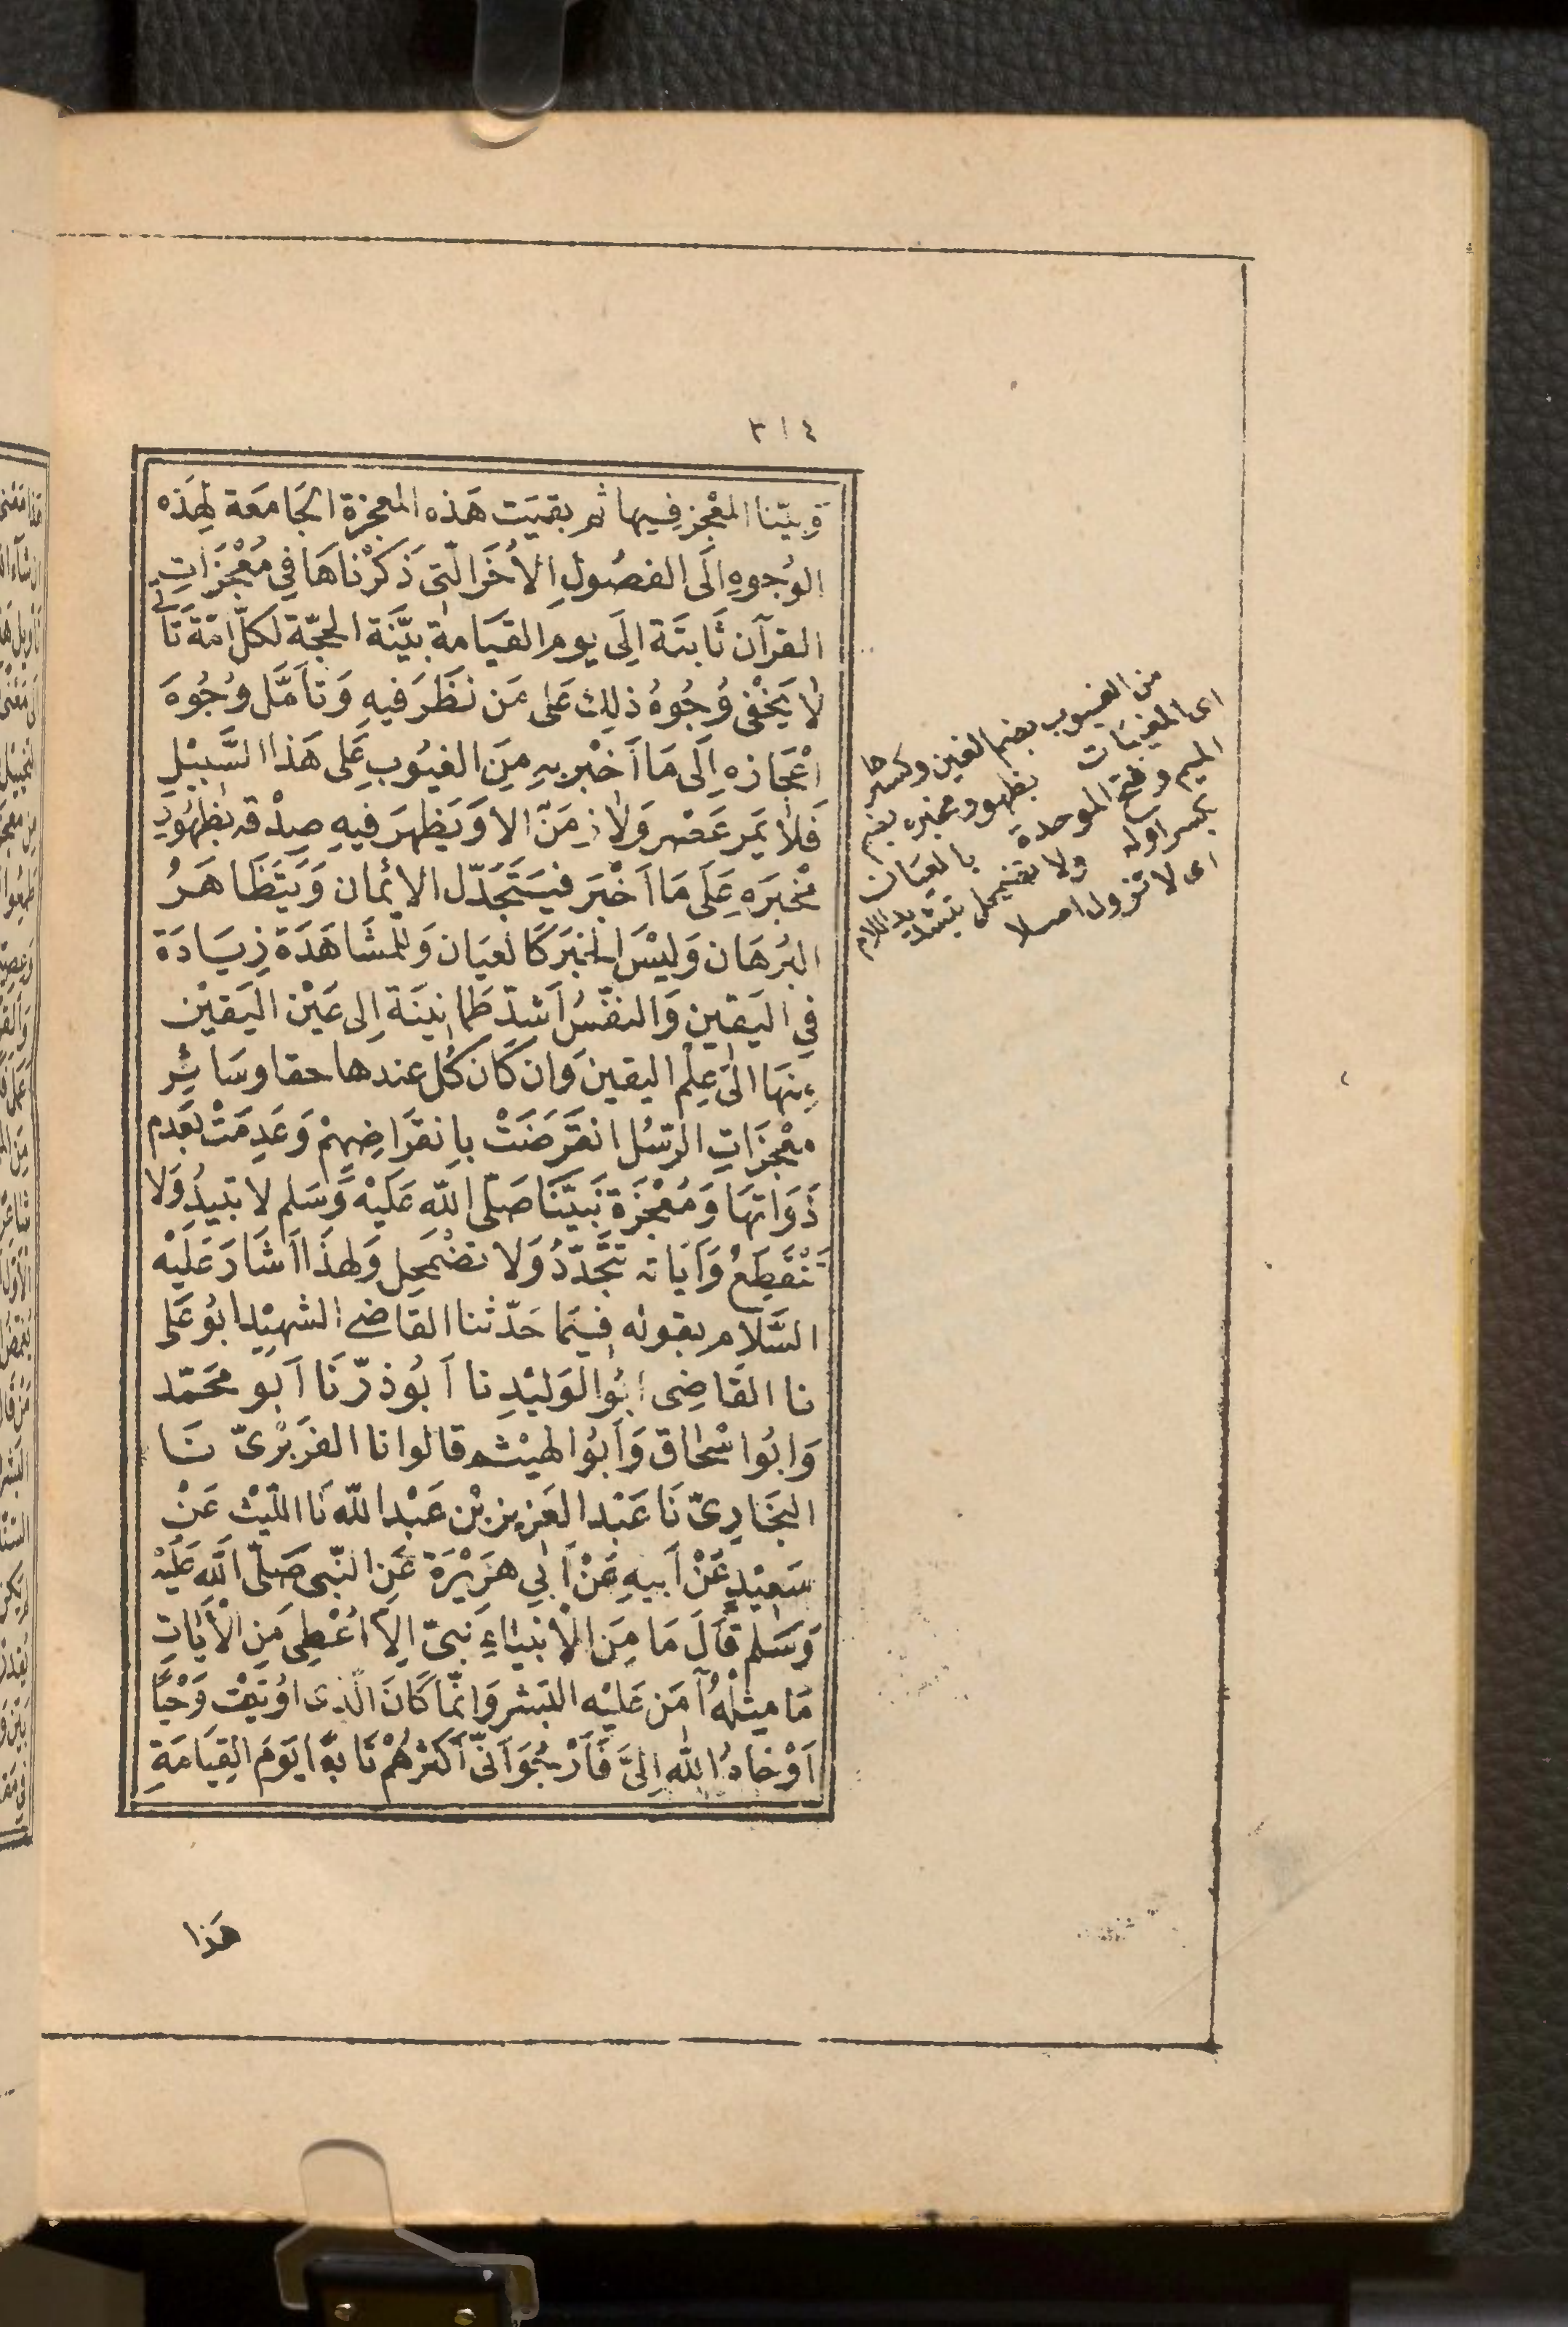 ٣١٤
وَبيّنا المعْجز فِيها ثم بقيَت هَذه المعجزة الجَامعَة لِهَذه
الوُجوهِ اِلَى الفصُولِ الأُخَر الّتى ذَكَرْناهَا فِي مُعْجزَاتِ
القرآن ثَابتَة اِلَى يوم القيَامة بيّنَة الحجّة لكلّ امّة تَأتى
لا يَخْفى وُجُوهُ ذلِك عَلى مَن نظَرَ فيهِ وَتأمَّل وُجُوهَ
اعْجَازهِ اِلَى مَا اَخْبر بِهِ مِنَ الغيُوبِ عَلى هَذا السَّبيْلِ
فَلا يَمر عَصْر وَلا زمَنٌ الا وَيَظهرَ فيهِ صِدْقه بظهُورِ
مُخْبَرَهِ عَلَى مَا اَخْبَر فيَتَجَدّل الايْمان وَيَتَظَاهَرُ
البُرهَان وَليْسَ الخبَر كَالعيَان وَللمُشَاهَدَة زِيَادَة
فِي اليَقين وَالنفْسُ اَشدّ طَمانينَة اِلى عَيْن اليَقيْن
مِنهَا الَى عِلْم اليقين وَان كَان كُل عندها حقا وسَائِر
معْجزَاتِ الرّسُل انقَرَضَتْ بانقرَاضِهِمْ وَعَدِمَتْ بعَدم
ذَوَاتهَا وَمُعْجزَة نَبيّنَا صَلّى اللّه عَلَيْه وَسَلم لا تبيدُ وَلا
تَنْقَطِعُ وَآيَاته تتَجَدّدُ وَلا تضْمَحِل وَلهذَا اَشَارَ عَلَيْه
السَّلام بقوله فيمَا حَدّثنا القاضى الشهيْد ابُو عَلى
نا القَاضِى ابُو الوَليْدِ نا اَبُو ذرّ نَا اَبو محَمّد
وَابُوا سْحَاق وَاَبُوا لهيْثم قالوا نا الفَرَبْرىّ نَا
البخَارىّ نَا عَبْد العَزيز بْن عَبْد اللّه نَا اللّيْث عَنْ
سَعيْدٍ عَنْ اَبيهِ عَنْ اَبِي هرَيْرَة عَنِ النّبى صَلّى اللّه عَلَيْه
وَسَلم قَالَ مَا مِنَ الْانبيَاءِ نَبىّ اِلاّ اُعْطِى مِنِ الْآيَاتِ
مَا مِثلُهُ آمَن عَليْه البَشر وَانّمَا كَانَ الّذى اوُتيْت وَحْيًا
اَوْحَاهُ اللّه اِلىَّ فَاَرْجُو اَنّى اَكثرُهُمْ تَابعًا يَوَمَ القِيَامَةِ
من الغيوب بضم الغين وكسرها
اى المغيبات بظهور ومخبره بضم
الميم وفتح الموحدة بالعيان
بكسر اوله ولا تضمحل بتشديد اللام
اى لا تزول اصلا
هَذا